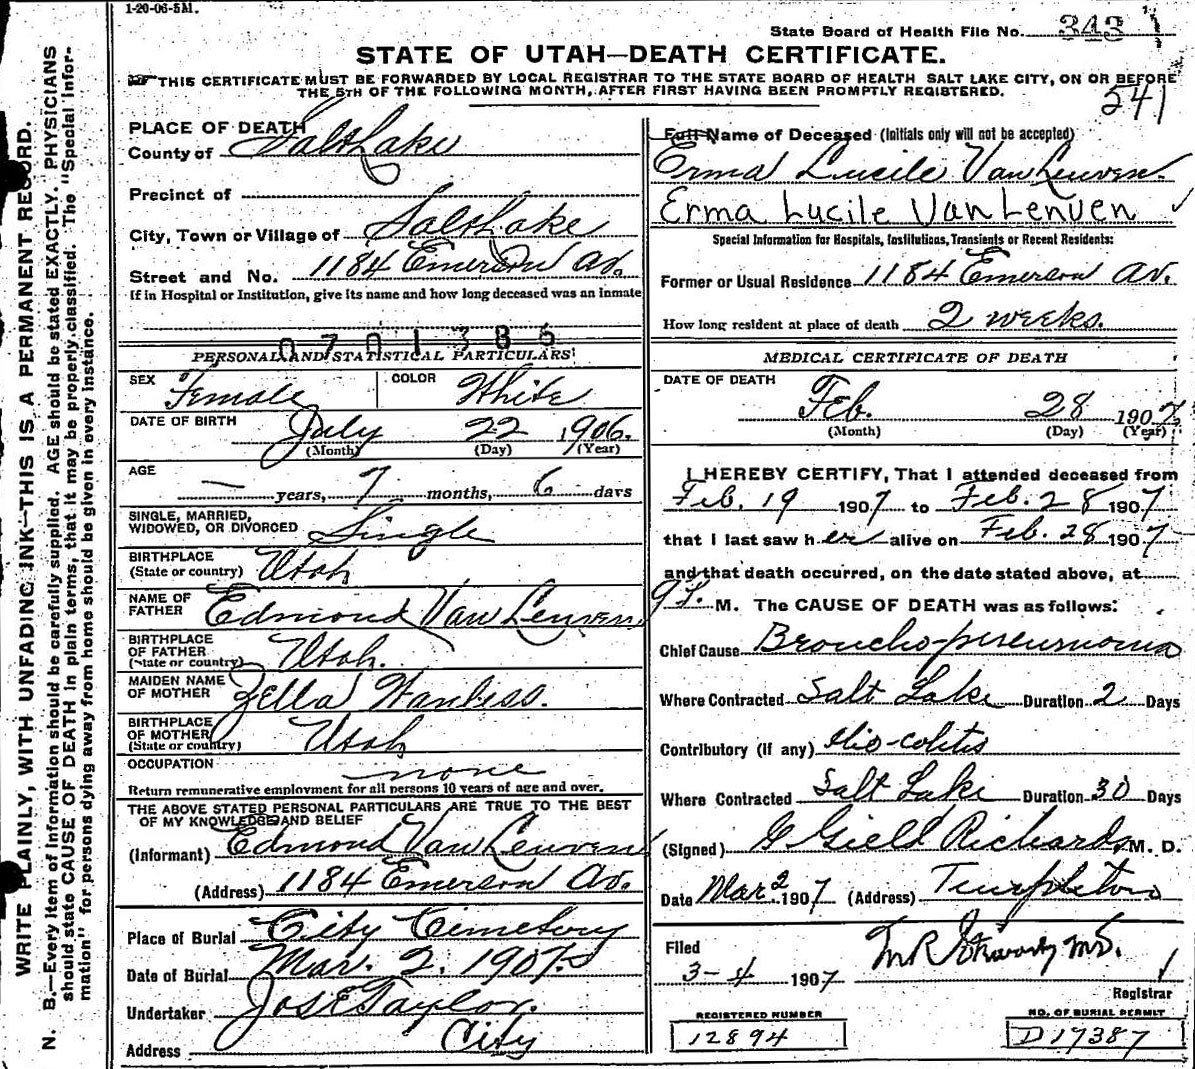 1-20-06-5M.
State Board of Health File No. 343
STATE OF UTAH—DEATH CERTIFICATE.
THIS CERTIFICATE MUST BE FORWARDED BY LOCAL REGISTRAR TO THE STATE BOARD OF HEALTH SALT LAKE CITY, ON OR BEFORE
THE 5TH OF THE FOLLOWING MONTH, AFTER FIRST HAVING BEEN PROMPTLY REGISTERED.
541
WRITE PLAINLY, WITH UNFADING INK—THIS IS A PERMANENT RECORD.
N. B.—Every item of information should be carefully supplied. AGE should be stated EXACTLY. PHYSICIANS
should state CAUSE OF DEATH in plain terms, that it may be properly classified. The "Special Infor-
mation" for persons dying away from home should be given in every instance.
PLACE OF DEATH
County of Salt Lake
Precinct of
City, Town or Village of Salt Lake
Street and No. 1184 Emerson Av.
If in Hospital or Institution, give its name and how long deceased was an inmate
0701386
PERSONAL AND STATISTICAL PARTICULARS
SEX Female COLOR White
DATE OF BIRTH July 22 1906.
(Month) (Day) (Year)
AGE
— years, 7 months, 6 days
SINGLE, MARRIED,
WIDOWED, OR DIVORCED Single
BIRTHPLACE
(State or country) Utah
NAME OF
FATHER Edmond Van Leuven
BIRTHPLACE
OF FATHER
(State or country) Utah.
MAIDEN NAME
OF MOTHER Zella Wanless.
BIRTHPLACE
OF MOTHER
(State or country) Utah
OCCUPATION none
Return remunerative employment for all persons 10 years of age and over.
THE ABOVE STATED PERSONAL PARTICULARS ARE TRUE TO THE BEST
OF MY KNOWLEDGE AND BELIEF
(Informant) Edmond Van Leuven
(Address) 1184 Emerson Av.
Place of Burial City Cemetery
Date of Burial Mar. 2. 1907.
Undertaker Jos E Taylor.
Address City
Full Name of Deceased (Initials only will not be accepted)
Erma Lucile Van Leuven.
Erma Lucile Van Lenven
Special Information for Hospitals, Institutions, Transients or Recent Residents:
Former or Usual Residence 1184 Emerson Av.
How long resident at place of death 2 weeks.
MEDICAL CERTIFICATE OF DEATH
DATE OF DEATH
Feb. 28 1907
(Month) (Day) (Year)
I HEREBY CERTIFY, That I attended deceased from
Feb. 19 1907 to Feb. 28 1907
that I last saw her alive on Feb. 28 1907
and that death occurred, on the date stated above, at
M. The CAUSE OF DEATH was as follows:
Chief Cause Broncho-pneumonia
Where Contracted Salt Lake Duration 2 Days
Contributory (if any) Ilio-colitis
Where Contracted Salt Lake Duration 30 Days
(Signed) G Gill Richards, M. D.
Date Mar 2 1907 (Address) Templeton
Filed
3-4 1907
Registrar
REGISTERED NUMBER
12894
NO. OF BURIAL PERMIT
D17387